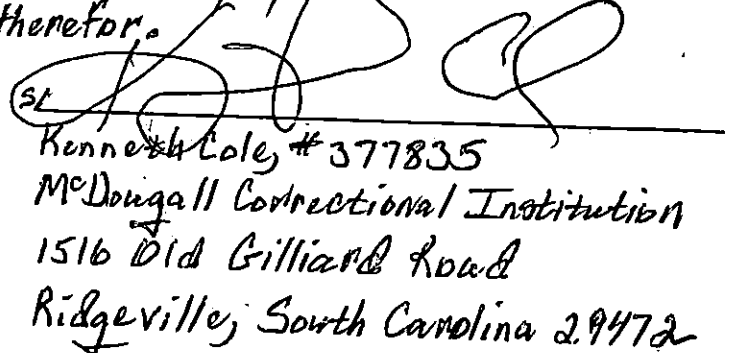 therefor.
s/
Kenneth Cole, #377835
McDougall Correctional Institution
1516 Old Gilliard Road
Ridgeville, South Carolina 29472